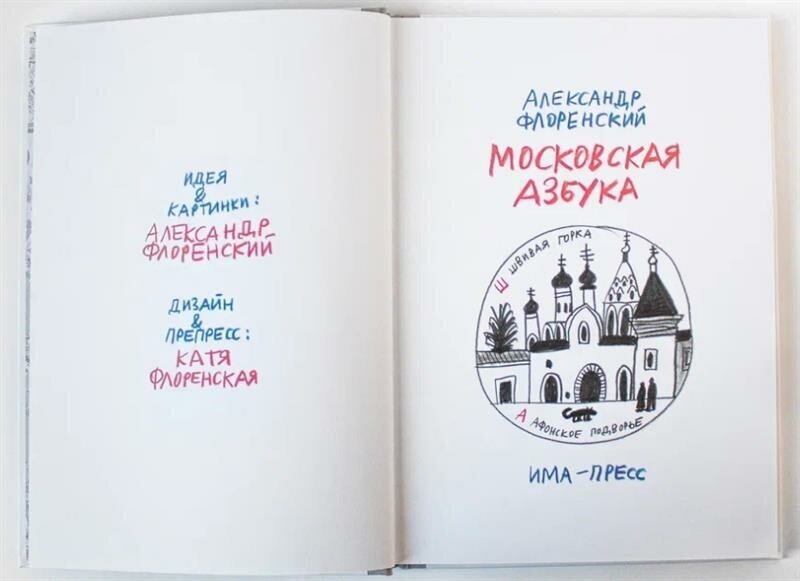 ИДЕЯ
&
КАРТИНКИ:
АЛЕКСАНДР
ФЛОРЕНСКИЙ
ДИЗАЙН
&
ПРЕПРЕСС:
КАТЯ
ФЛОРЕНСКАЯ
АЛЕКСАНДР
ФЛОРЕНСКИЙ
МОСКОВСКАЯ
АЗБУКА
Ш ШВИВАЯ ГОРКА
А АФОНСКОЕ ПОДВОРЬЕ
ИМА-ПРЕСС